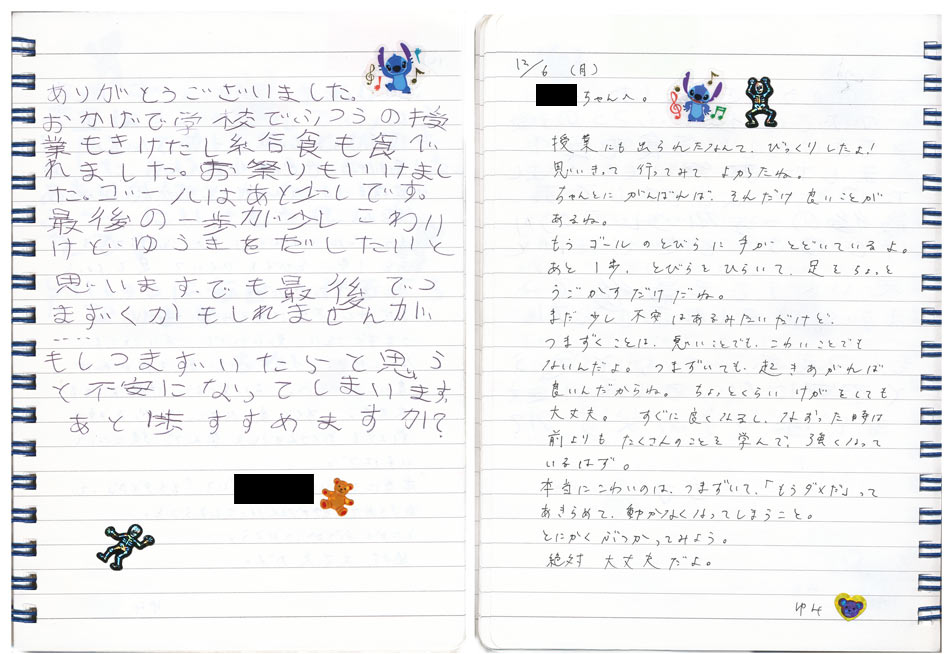 ありがとうございました。
おかげで学校でふつうの授
業もきけたし給食も食べ
れました。お祭りもいけまし
た。ゴールはあと少しです。
最後の一歩が少しこわい
けどゆうきをだしたいと
思います。でも最後でつ
まずくかもしれませんが
‥‥
もしつまずいたらと思う
と不安になってしまいます。
あと1歩すすめますか?
12/6 (月)
ちゃんへ。
授業にも出られたなんて、びっくりしたよ!
思いきって 行ってみて よかったね。
ちゃんとに がんばれば、それだけ 良いことが
あるね。
もう ゴールのとびらに 手が とどいているよ。
あと 1歩、とびらをひらいて、足を ちょっと
うごかすだけだね。
まだ少し 不安はあるみたいだけど、
つまずくことは、悪いことでも、こわいことでも
ないんだよ。 つまずいても、起きあがれば
良いんだからね。 ちょっとくらい けがをしても
大丈夫。 すぐに良くなるし、なおった時は
前よりも たくさんのことを 学んで、強くなって
いるはず。
本当にこわいのは、つまずいて、「もうダメだ」って
あきらめて、動かなくなってしまうこと。
とにかく ぶつかってみよう。
絶対 大丈夫だよ。
ゆみ